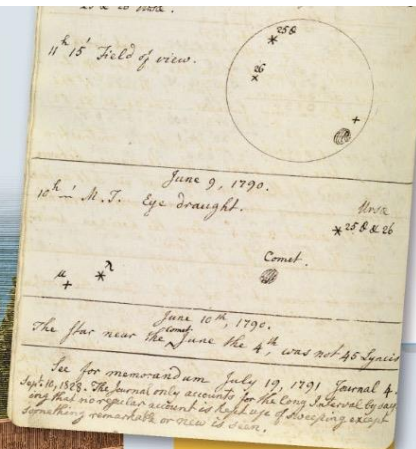 25 & 26 Ursa.
25 θ
11h 15' Field of view.
26
June 9, 1790.
10h M.T. Eye draught.
Ursa
25 θ & 26
Comet.
μ λ
June 10th, 1790.
The Star near the comet June the 4th, was not 45 Lyncis
See for memorandum July 19, 1791 Journal 4.
Sept. 10, 1828. The Journal only accounts for the long Interval by say-
ing that no regular account is kept of sweeping except
something remarkable or new is seen.